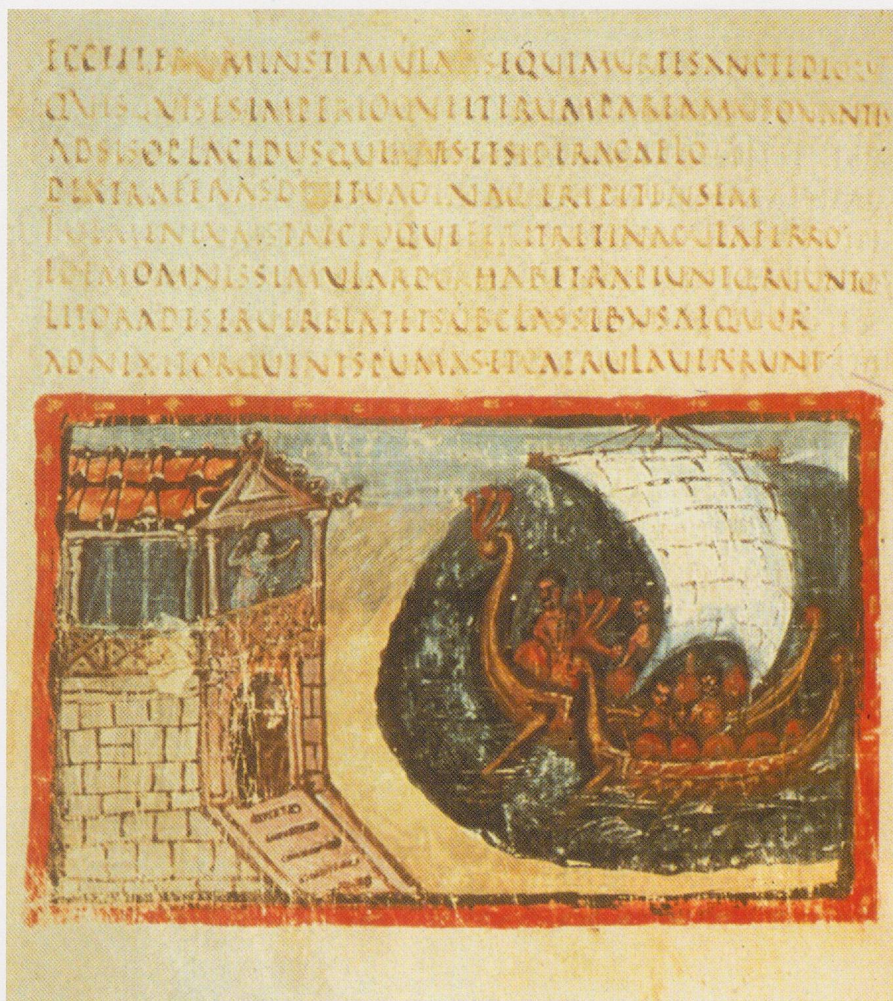 ECCEITERUMINSTIMULATSEQUIMURTESANCTEDEORU
QUISQUISESIMPERIOQUEITERUMPAREAMUSOUANTE
ADSISOPLACIDUSQUEIUUESETSIDERACAELO
DEXTRAFERASDIXITUAGINAQ·ERIPITENSEM
FULMINEUMSTRICTOQUEFERITRETINACULAFERRO
IDEMOMNISSIMULARDORHABETRAPIUNTQ·RUUNTQ
LITORADESERUERELATETSUBCLASSIBUSAEQUOR
ADNIXITORQUENTSPUMASETCAERULAUERRUNT